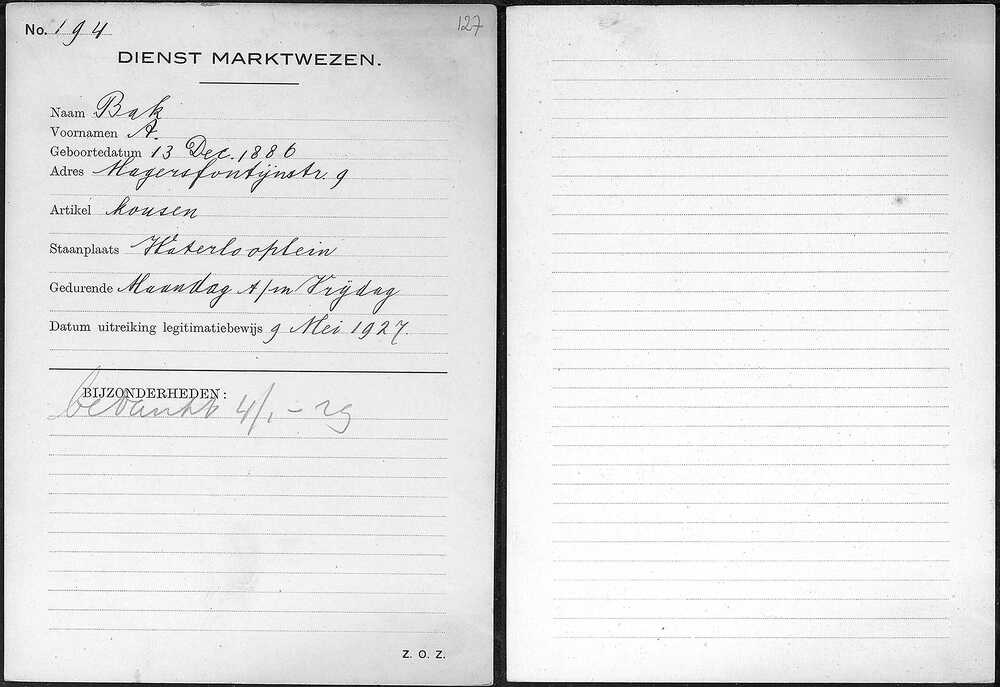 No. 194
127
DIENST MARKTWEZEN.
Naam Bak
Voornamen A.
Geboortedatum 13 Dec. 1886
Adres Magersfontijnstr. 9
Artikel kousen
Staanplaats Waterlooplein
Gedurende Maandag t/m Vrijdag
Datum uitreiking legitimatiebewijs 9 Mei 1927.
BIJZONDERHEDEN:
bedankt 4/1 - 29
Z. O. Z.